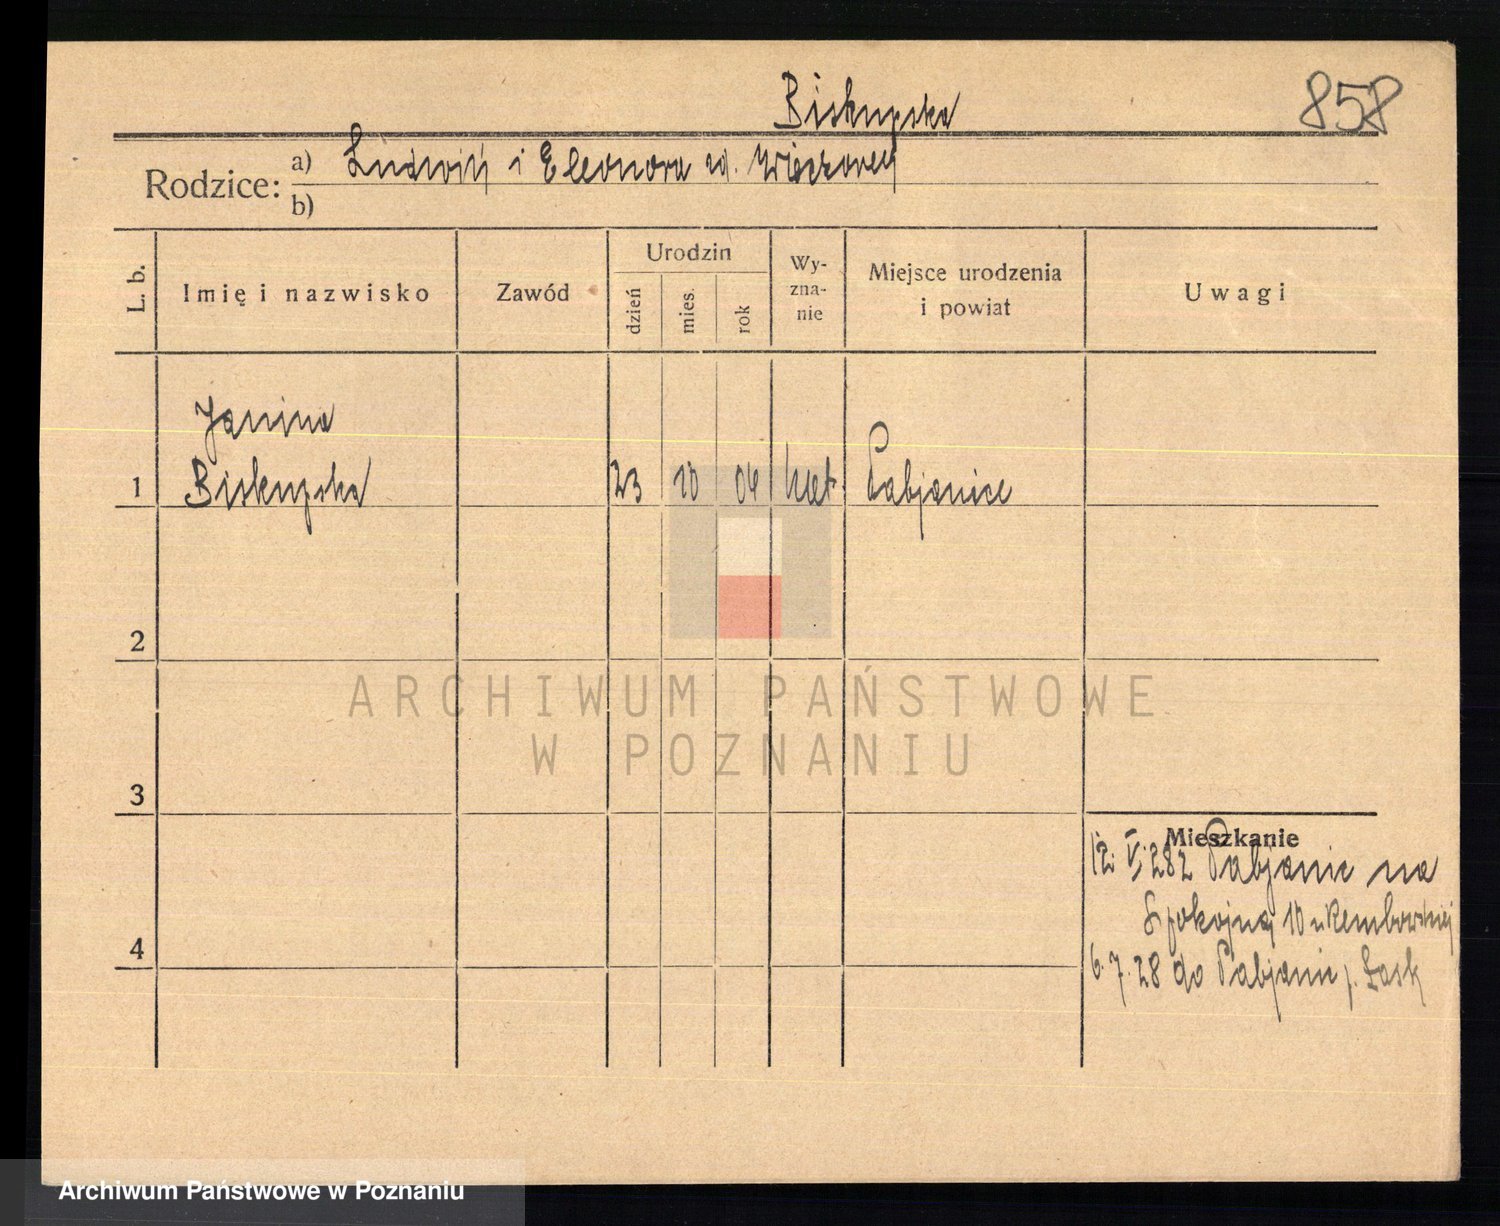 Biskupska
858
Rodzice: a) Ludwik i Eleonora zd.
b)
L. b.
Imię i nazwisko
Zawód
Urodzin
dzień
mies.
rok
Wy-
zna-
nie
Miejsce urodzenia
i powiat
Uwagi
Janina
1 Biskupska 23 10 04 kat. Pabjanice
2
ARCHIWUM PAŃSTWOWE
W POZNANIU
3
Mieszkanie
12. V. 28 z Pabjanic na
Spokojną 10 u Rembowskiej
4
6.7.28 do Pabjanic p. Łask
Archiwum Państwowe w Poznaniu